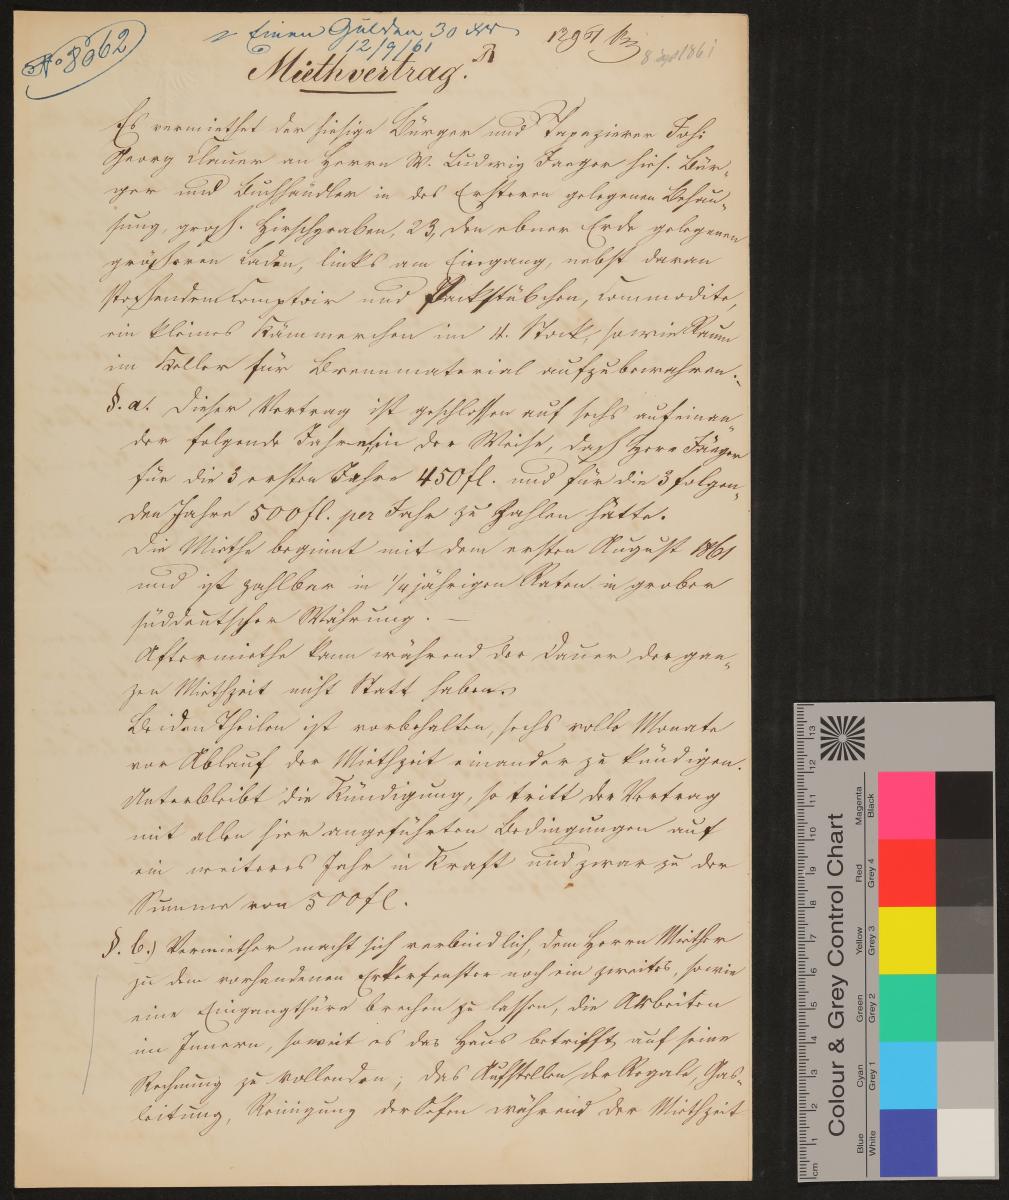 No 8062
Einen Gulden 30 xr
12/9/61
1861
Miethvertrag.
Es vermiethet der hiesige Bürger und Tapezierer Joh:
Georg Clauer an Herrn W. Ludwig Jaeger hies. Bür-
ger und Buchhändler in des Ersteren gelegenen Behau-
sung, groß. Hirschgraben, 23, den ebner Erde gelegenen
größeren Laden, links am Eingang, nebst daran
stoßendem Comptoir und Packstübchen, Commodite,
ein kleines Kämmerchen im 4. Stock, sowie Raum
im Keller für Brennmaterial aufzubewahren.-
§. a. Dieser Vertrag ist geschlossen auf sechs aufeinan-
der folgende Jahre, in der Weise, daß Herr Jäeger
für die 3 ersten Jahre 450 fl. und für die 3 folgen-
den Jahre 500 fl. per Jahr zu zahlen hätte.
Die Miethe beginnt mit dem ersten August 1861
und ist zahlbar in 1/4 jährigen Raten in grober
süddeutscher Währung. —
Aftermiethe kann während der Dauer der gan-
zen Miethzeit nicht Statt haben.
Beiden Theilen ist vorbehalten, sechs volle Monate
vor Ablauf der Miethzeit einander zu kündigen.
Unterbleibt die Kündigung, so tritt der Vertrag
mit allen hier angeführten Bedingungen auf
ein weiteres Jahr in Kraft und zwar zu der
Summe von 500 fl.
§. b.) Vermiether macht sich verbindlich, dem Herrn Miether
zu dem vorhandenen Erkerfenster noch ein zweites, sowie
eine Eingangthüre brechen zu lassen, die Arbeiten
im Innern, soweit es das Haus betrifft, auf seine
Rechnung zu vollenden; das Aufstellen der Regale, Gas-
leitung, Reinigung der Oefen während der Miethzeit
Colour & Grey Control Chart
Blue Cyan Green Yellow Red Magenta
White Grey 1 Grey 2 Grey 3 Grey 4 Black
cm 1 2 3 4 5 6 7 8 9 10 11 12 13